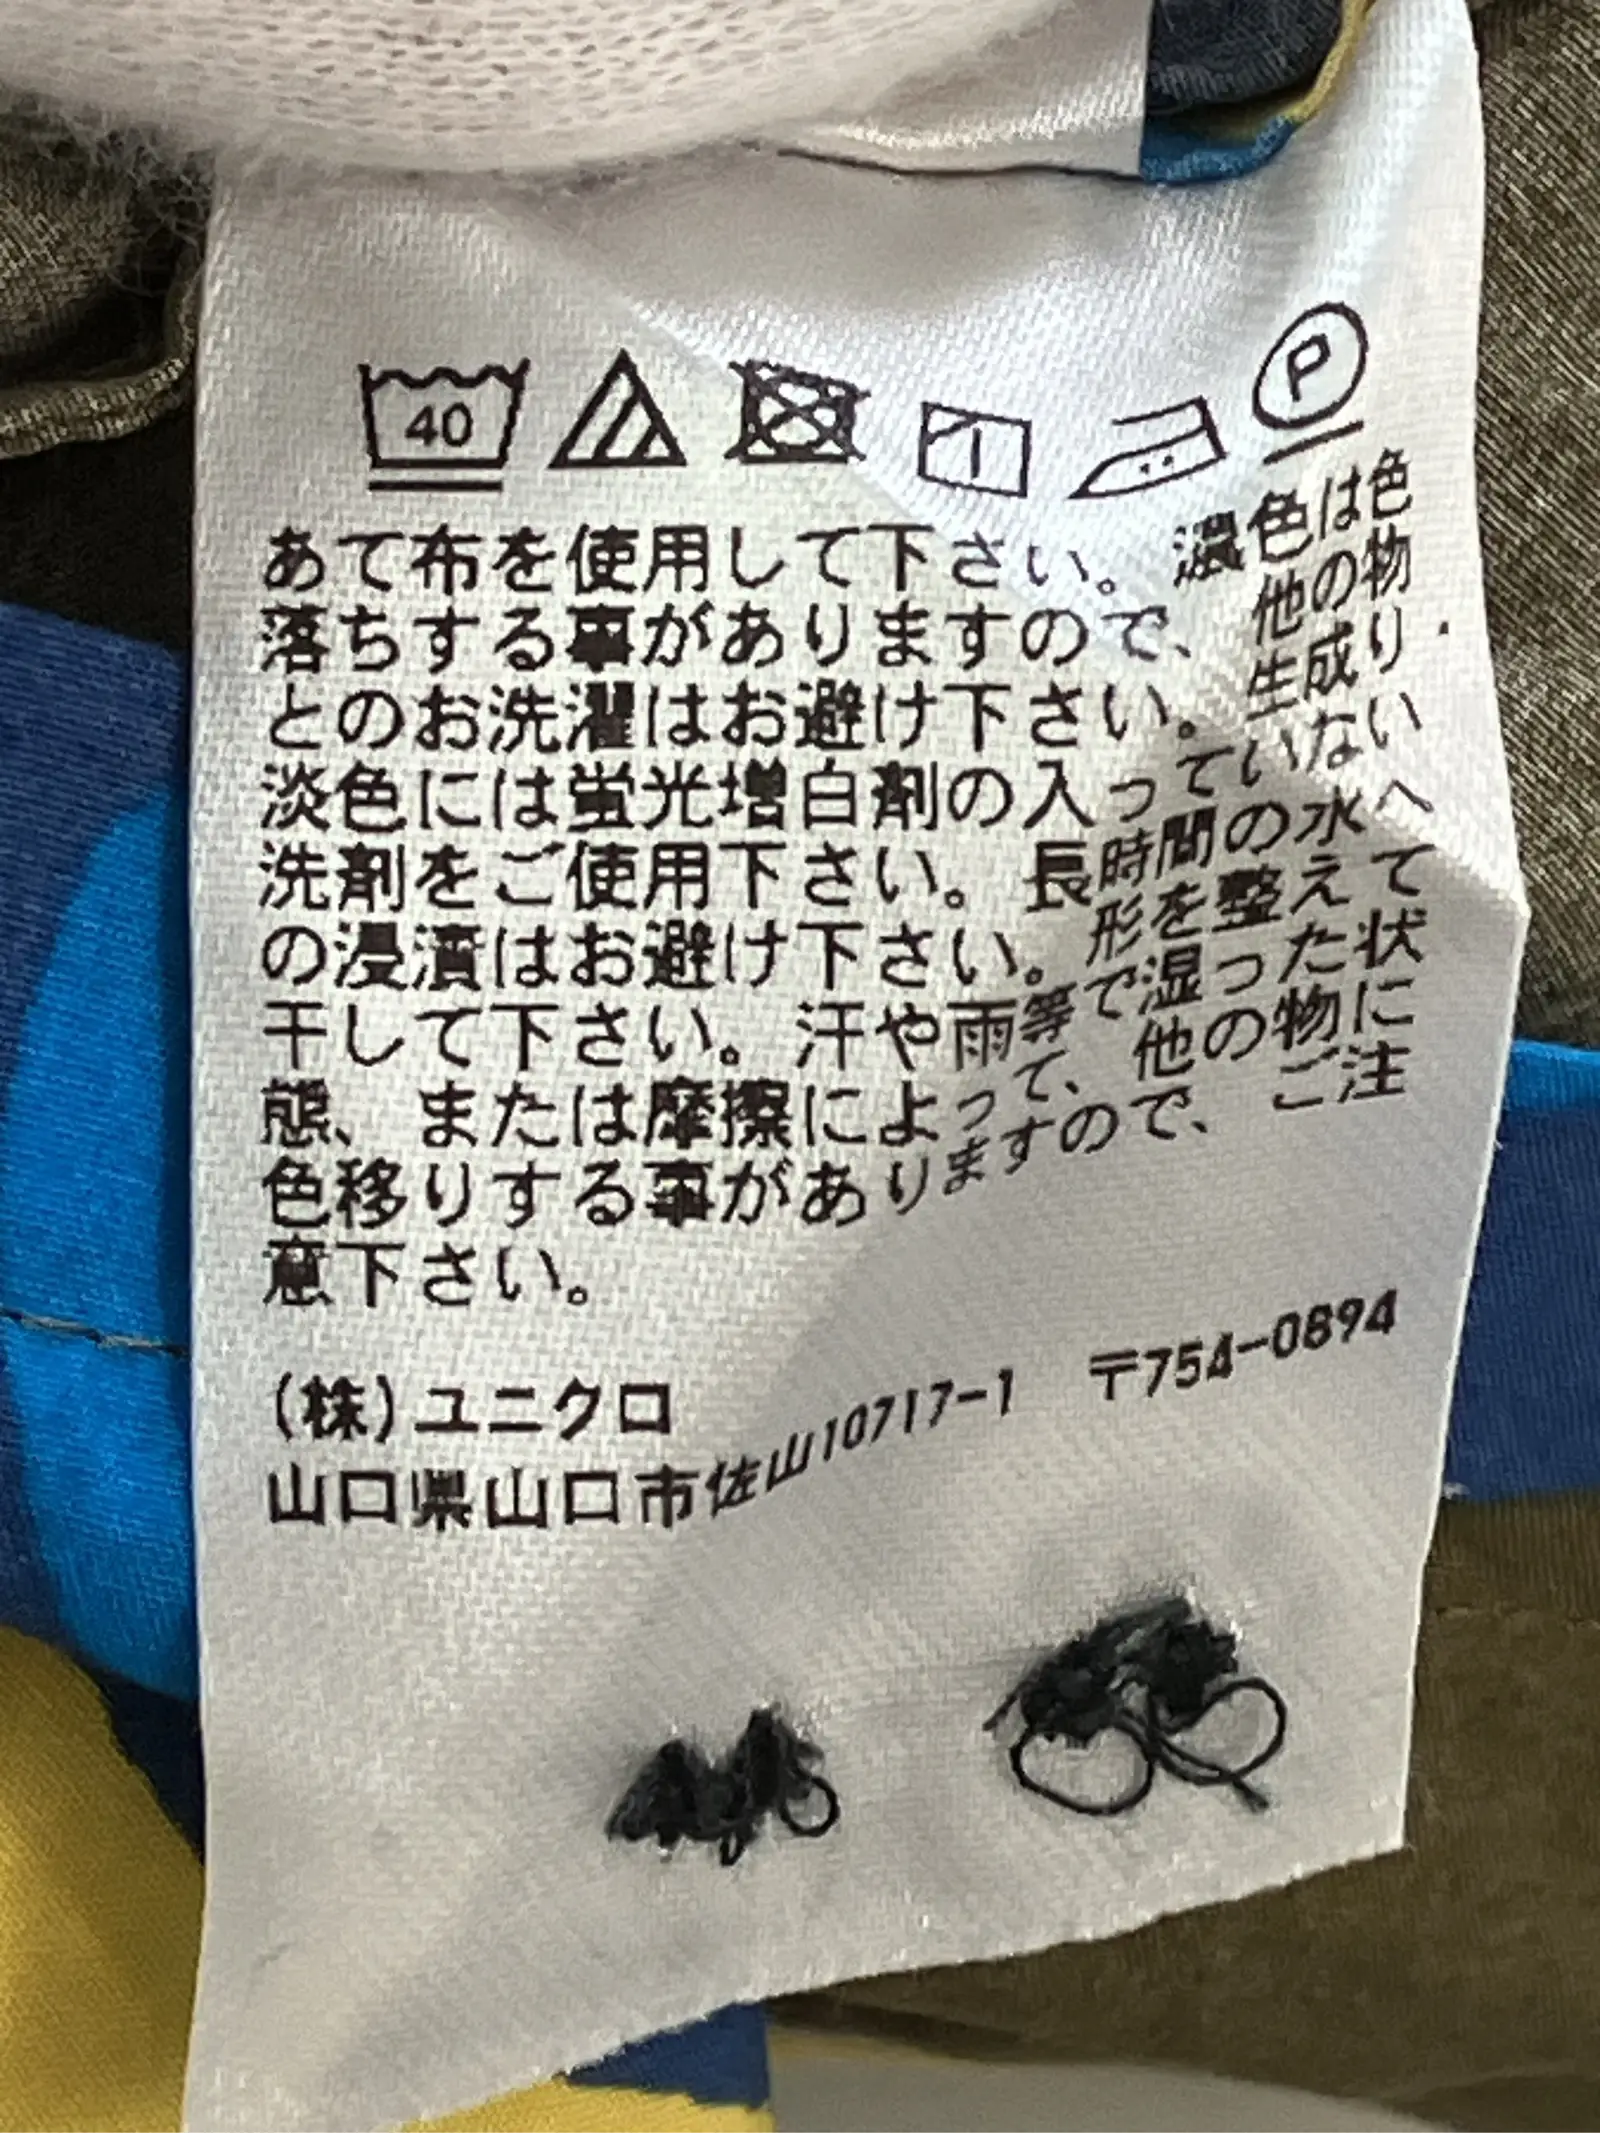 40
P
あて布を使用して下さい。濃色は色
落ちする事がありますので、他の物
とのお洗濯はお避け下さい。生成り
淡色には蛍光増白剤の入っていない
洗剤をご使用下さい。長時間の水へ
の浸漬はお避け下さい。形を整えて
干して下さい。汗や雨等で湿った状
態、または摩擦によって、他の物に
色移りする事がありますので、ご注
意下さい。
(株)ユニクロ
山口県山口市佐山10717-1 〒754-0894